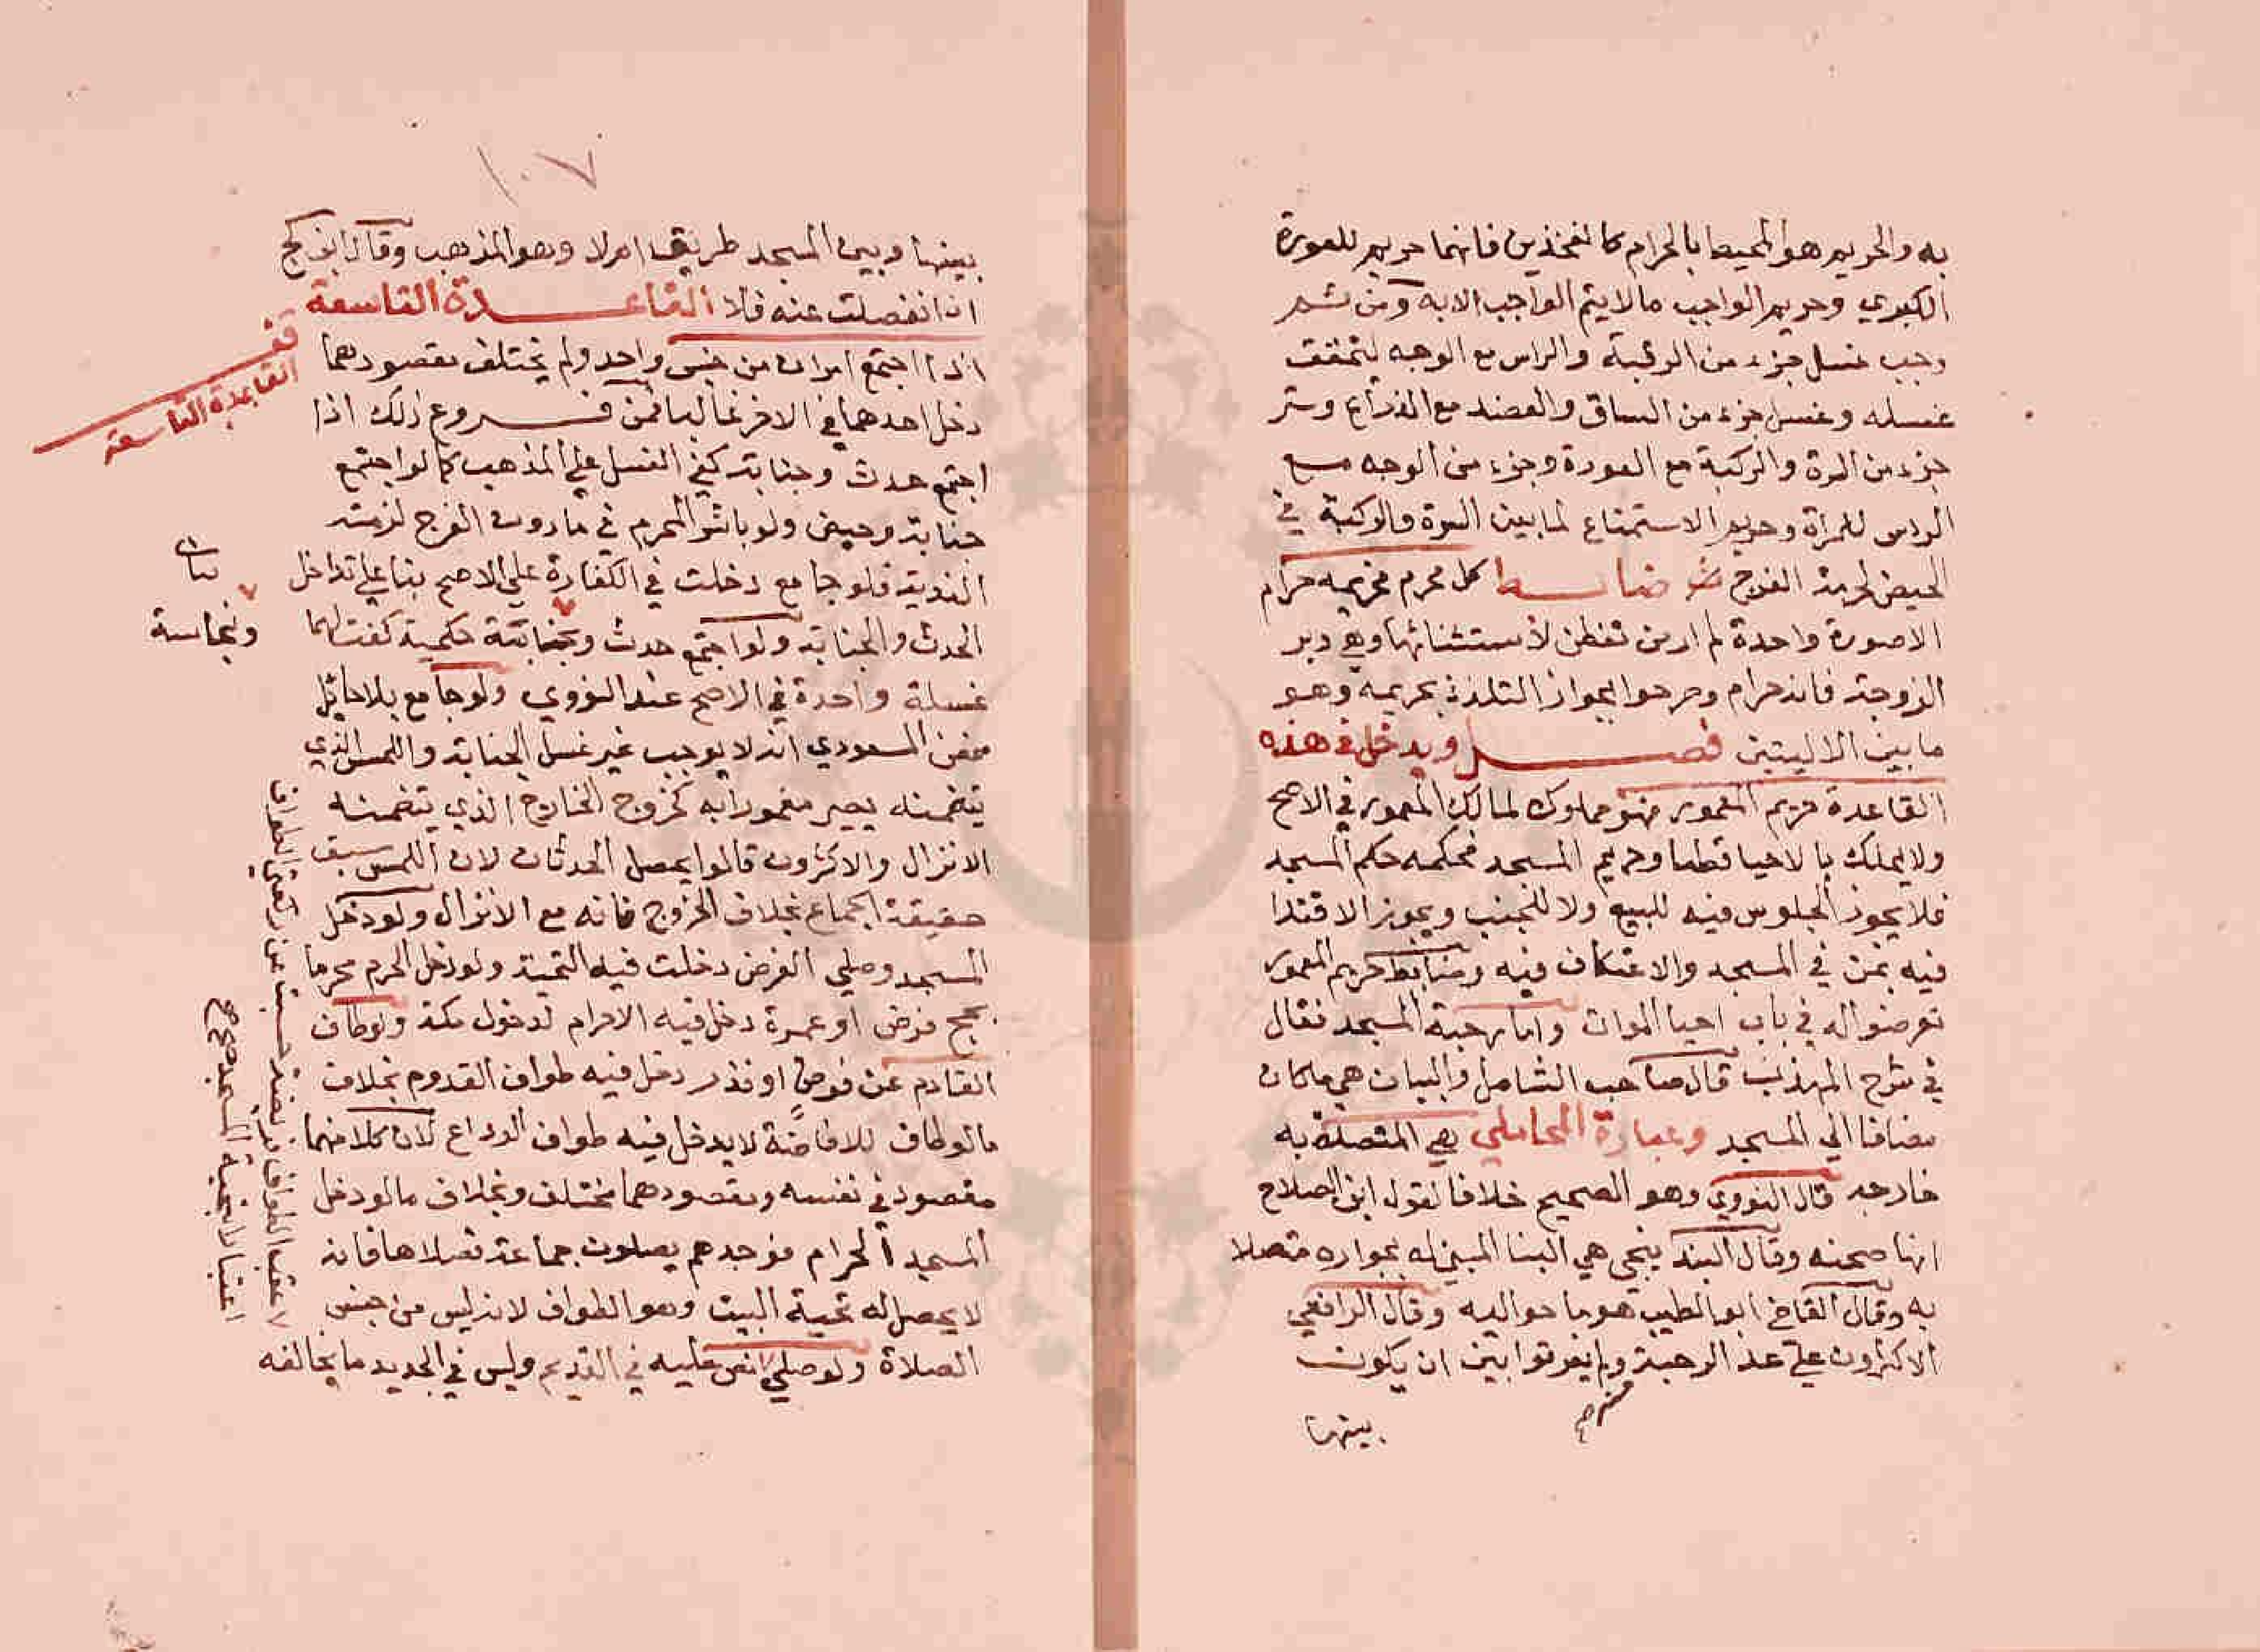 به والحريم هو المحيط بالحرام كالفخذين فانهما حريم للعورة
الكبري وحريم الواجب مالا يتم الواجب الا به ومن ثم
وجب غسل جزء من الرقبة والراس مع الوجه ليتحقق
غسله وغسل جزء من الساق والعضد مع الذراع وستر
جزء من السرة والركبة مع العورة وجزء من الوجه مع
الراس للمرأة وحريم الاستمتاع لما بين السرة والركبة في
الحيض لحرمة الفرج ضابط كل محرم فحريمه حرام
الا صورة واحدة لم ار من تفطن لاستثنائها وهي دبر
الزوجة فانه حرام وصرحوا بجواز التلذذ بحريمه وهو
ما بين الاليتين فصل ويدخل في هذه
القاعدة حريم المعمور فهو مملوك لمالك المعمور في الاصح
ولا يملك بالاحيا قطعا وحريم المسجد فحكمه حكم المسجد
فلا يجوز الجلوس فيه للبيع ولا للجنب ويجوز الاقتدا
فيه بمن في المسجد والاعتكاف فيه وضابط حريم المعمور
تعرضوا له في باب احيا الموات واما رحبة المسجد فقال
في شرح المهذب قال صاحب الشامل والبيان هي ما كان
مضافا الي المسجد وعبارة المحاملي هي المتصلة به
خارجه قال النووي وهو الصحيح خلافا لقول ابن الصلاح
انها صحنه وقال البندنيجي هي البنا المبني له بجواره متصلا
به وقال القاضي ابو الطيب هو ما حواليه وقال الرافعي
الاكثرون علي عد الرحبة منه ولم يفرقوا بين ان يكون
بينها
١٠٧
بينها وبين المسجد طريق ام لا وهو المذهب وقال ابن كج
ان انفصلت عنه فلا القاعدة التاسعة
اذا اجتمع امران من جنس واحد ولم يختلف مقصودهما
دخل احدهما في الاخر غالبا فمن فروع ذلك اذا
اجتمع حدث وجنابة كفي الغسل علي المذهب كما لو اجتمع
جنابة وحيض ولو باشر المحرم في ما دون الفرج لزمته
الفدية فلو جامع دخلت في الكفارة علي الاصح بنا علي تداخل
الحدث والجنابة ولو اجتمع حدث حكمية كفت لهما
غسلة واحدة في الاصح عند النووي ولو جامع بلا حائل
فعن المسعودي انه لا يوجب غير غسل الجنابة واللمس الذي
يتضمنه يصير مغمورا به كخروج الخارج الذي يتضمنه
الانزال والاكثرون قالوا يحصل الحدثان لان اللمس سبق
حقيقة الجماع بخلاف الخروج فانه مع الانزال ولو دخل
المسجد وصلي الفرض دخلت فيه التحية ولو دخل الحرم محرما
بحج فرض او عمرة دخل فيه الاحرام لدخول مكة ولو طاف
القادم عن فرض او نذر دخل فيه طواف القدوم بخلاف
ما لو طاف للافاضة لا يدخل فيه طواف الوداع لان كلا منهما
مقصود في نفسه ومقصودهما مختلف وبخلاف ما لو دخل
المسجد الحرام فوجدهم يصلون جماعة فصلاها فانه
لا يحصل له تحية البيت وهو الطواف لانه ليس من جنس
الصلاة ولو صلي نص عليه في القديم وليس في الجديد ما يخالفه
قف
القاعدة التاسعة
ونجاسة
عقب الطواف فريضة حسبت عن ركعتي الطواف
اعتبارا بتحية المسجد صح